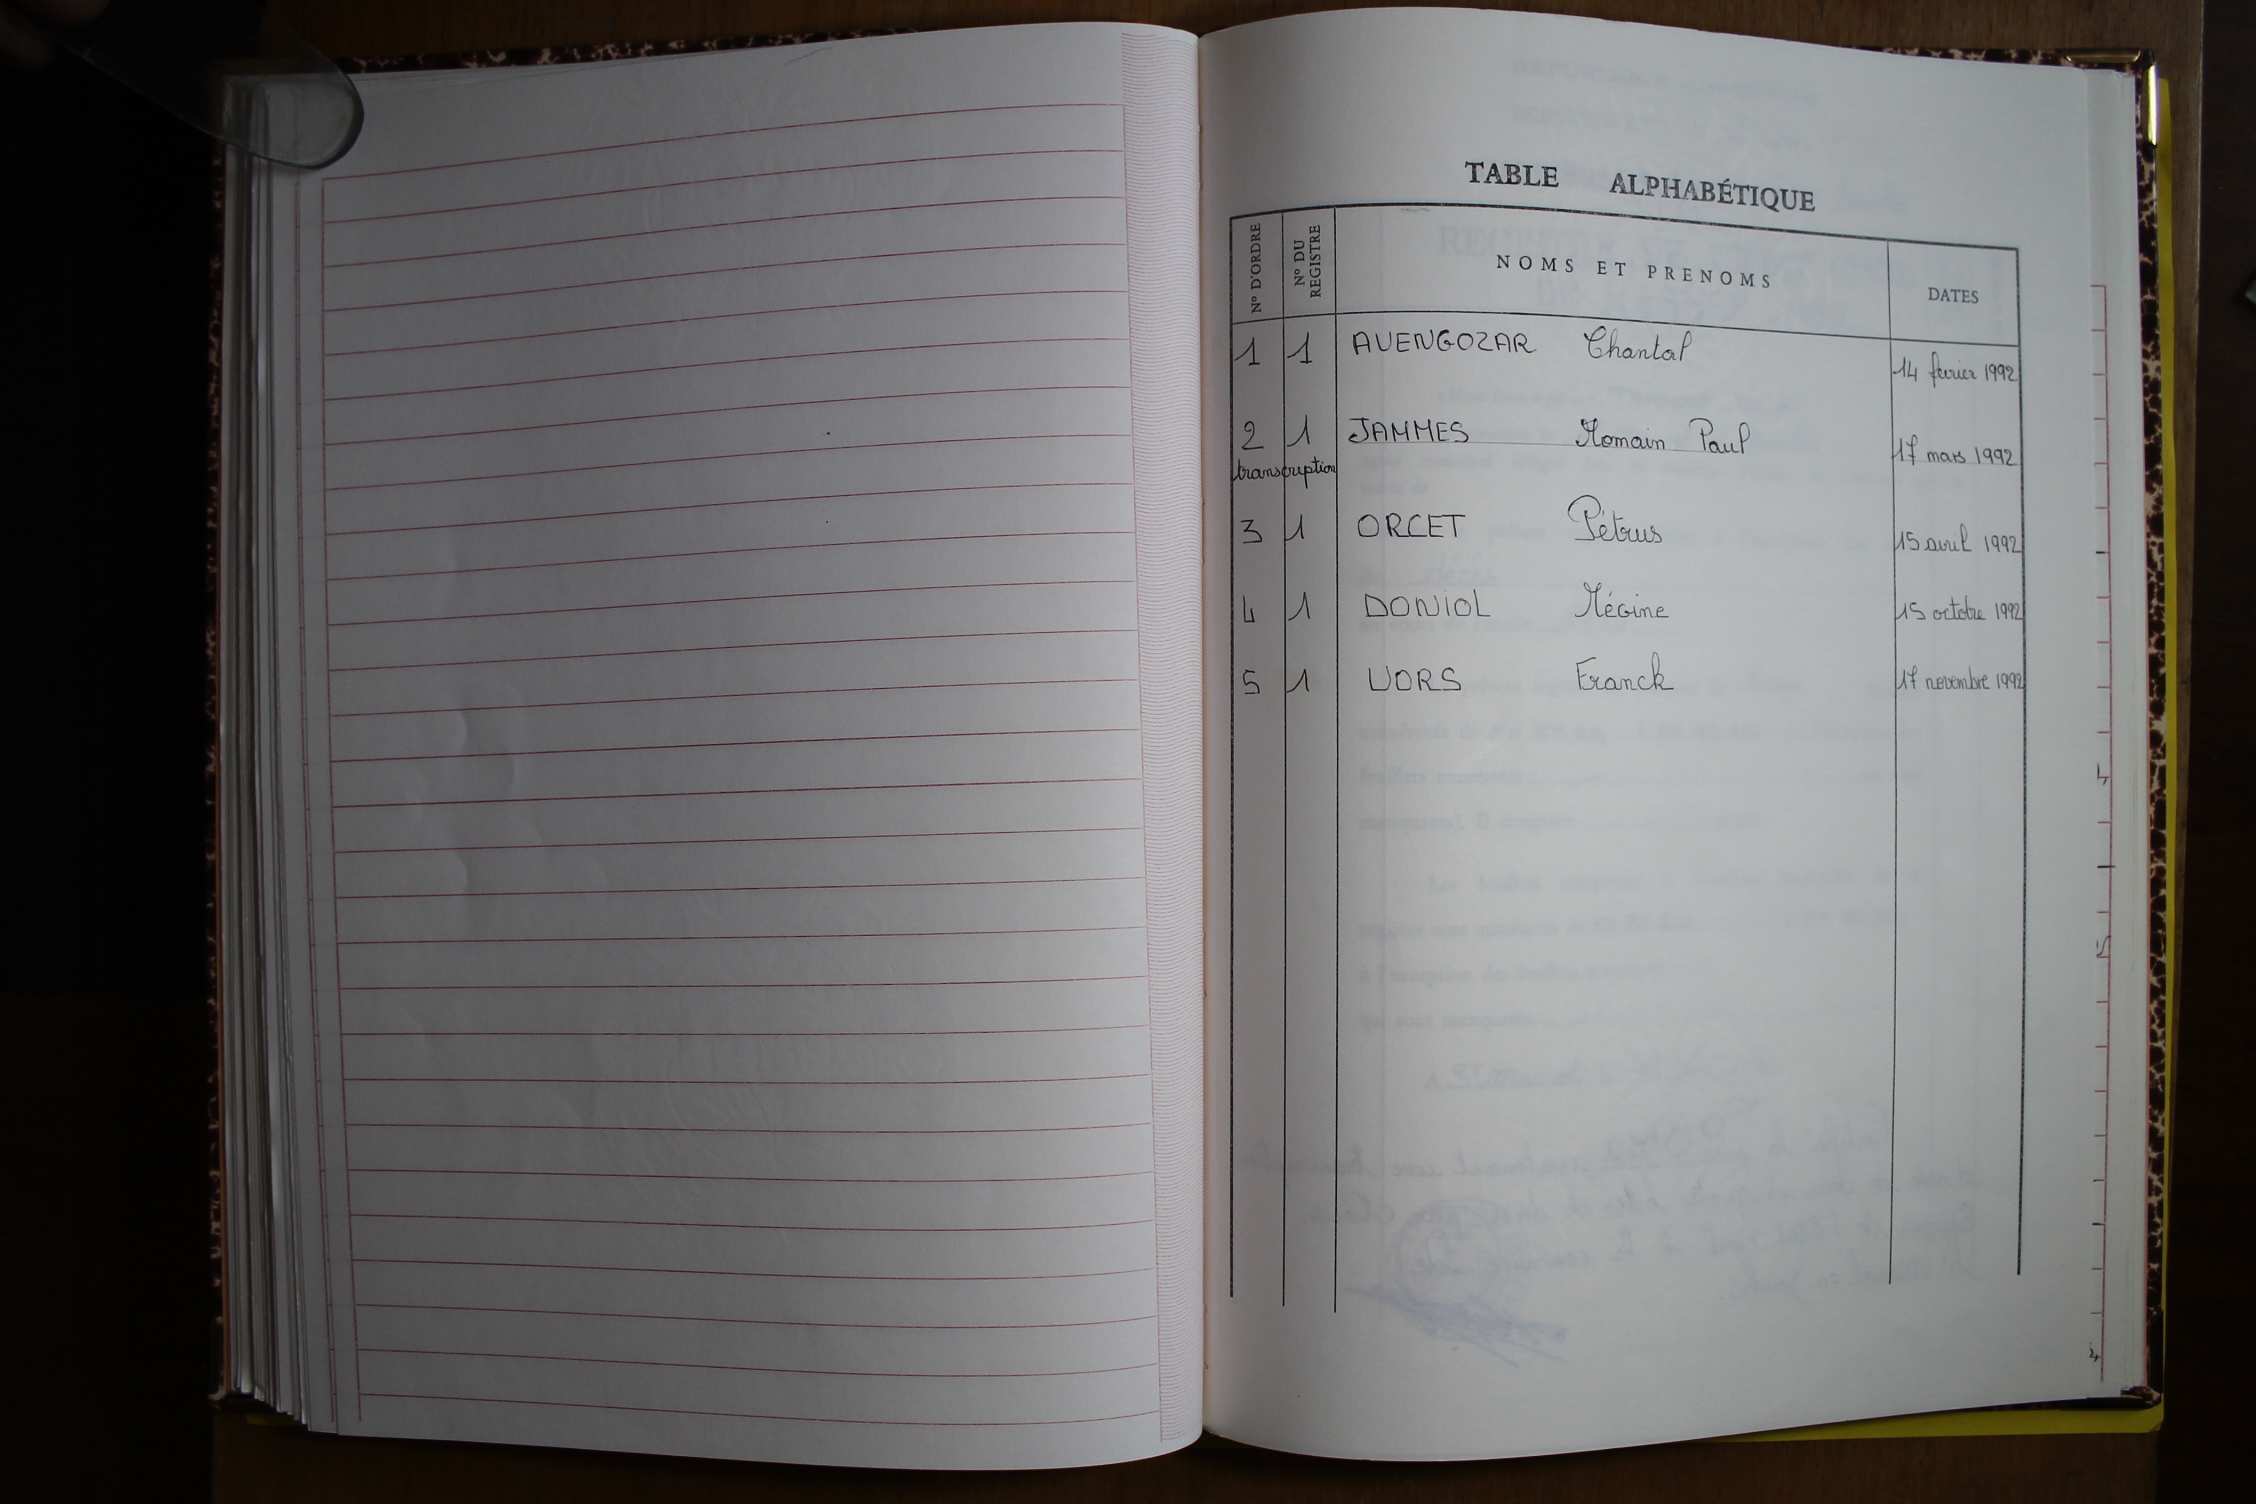 TABLE ALPHABÉTIQUE
N° D'ORDRE N° DU REGISTRE NOMS ET PRENOMS DATES
1 1 AVENGOZAR Chantal 14 février 1992
2 1 JAMMES Romain Paul 17 mars 1992
transcription
3 1 ORCET Pétrus 15 avril 1992
4 1 DONIOL Régine 15 octobre 1992
5 1 VORS Franck 17 novembre 1992